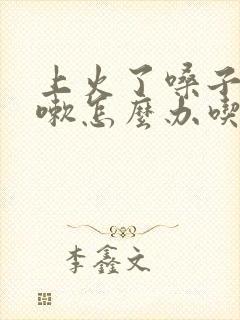 上火了嗓子
嗽怎麼办喫
李鑫文